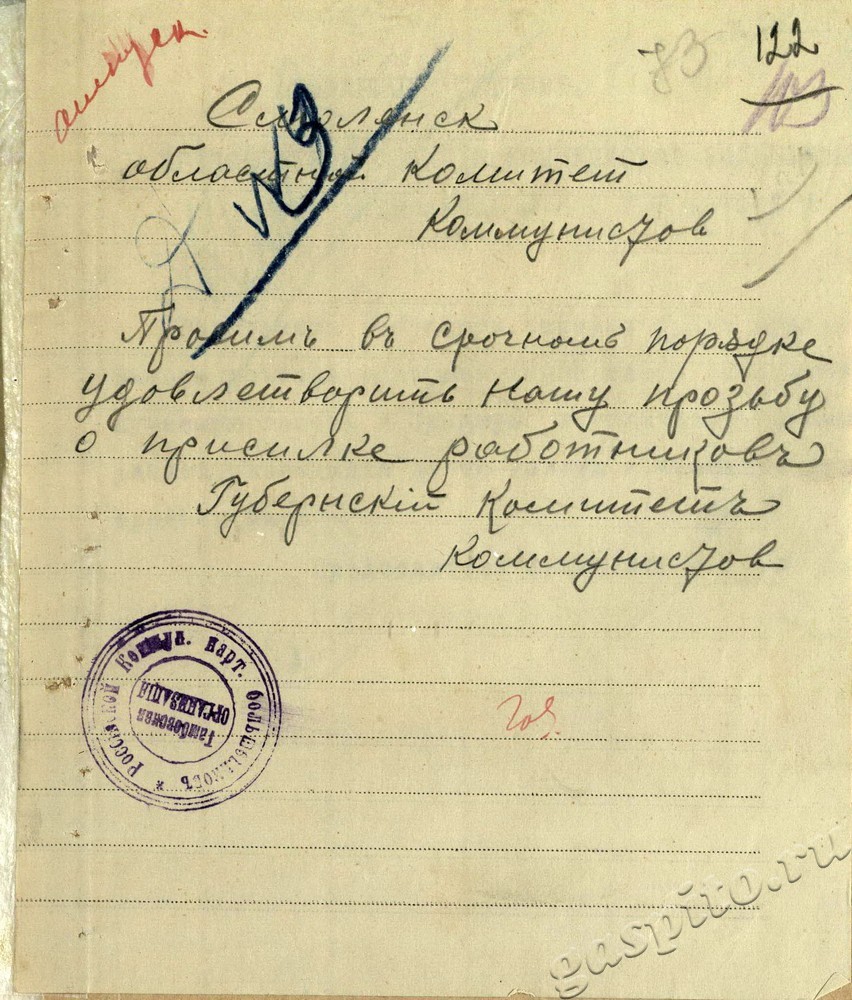 отпуск.
83
122
Смоленск
областной Комитет
Коммунистов
Просимъ въ срочномъ порядке
удовлетворить нашу прозьбу
о присилке работниковъ
Губернскій Комитетъ
Коммунистов
Россійской Коммун. парт. большевиковъ *
Тамбовская
ОРГАНИЗАЦІЯ
gaspito.ru